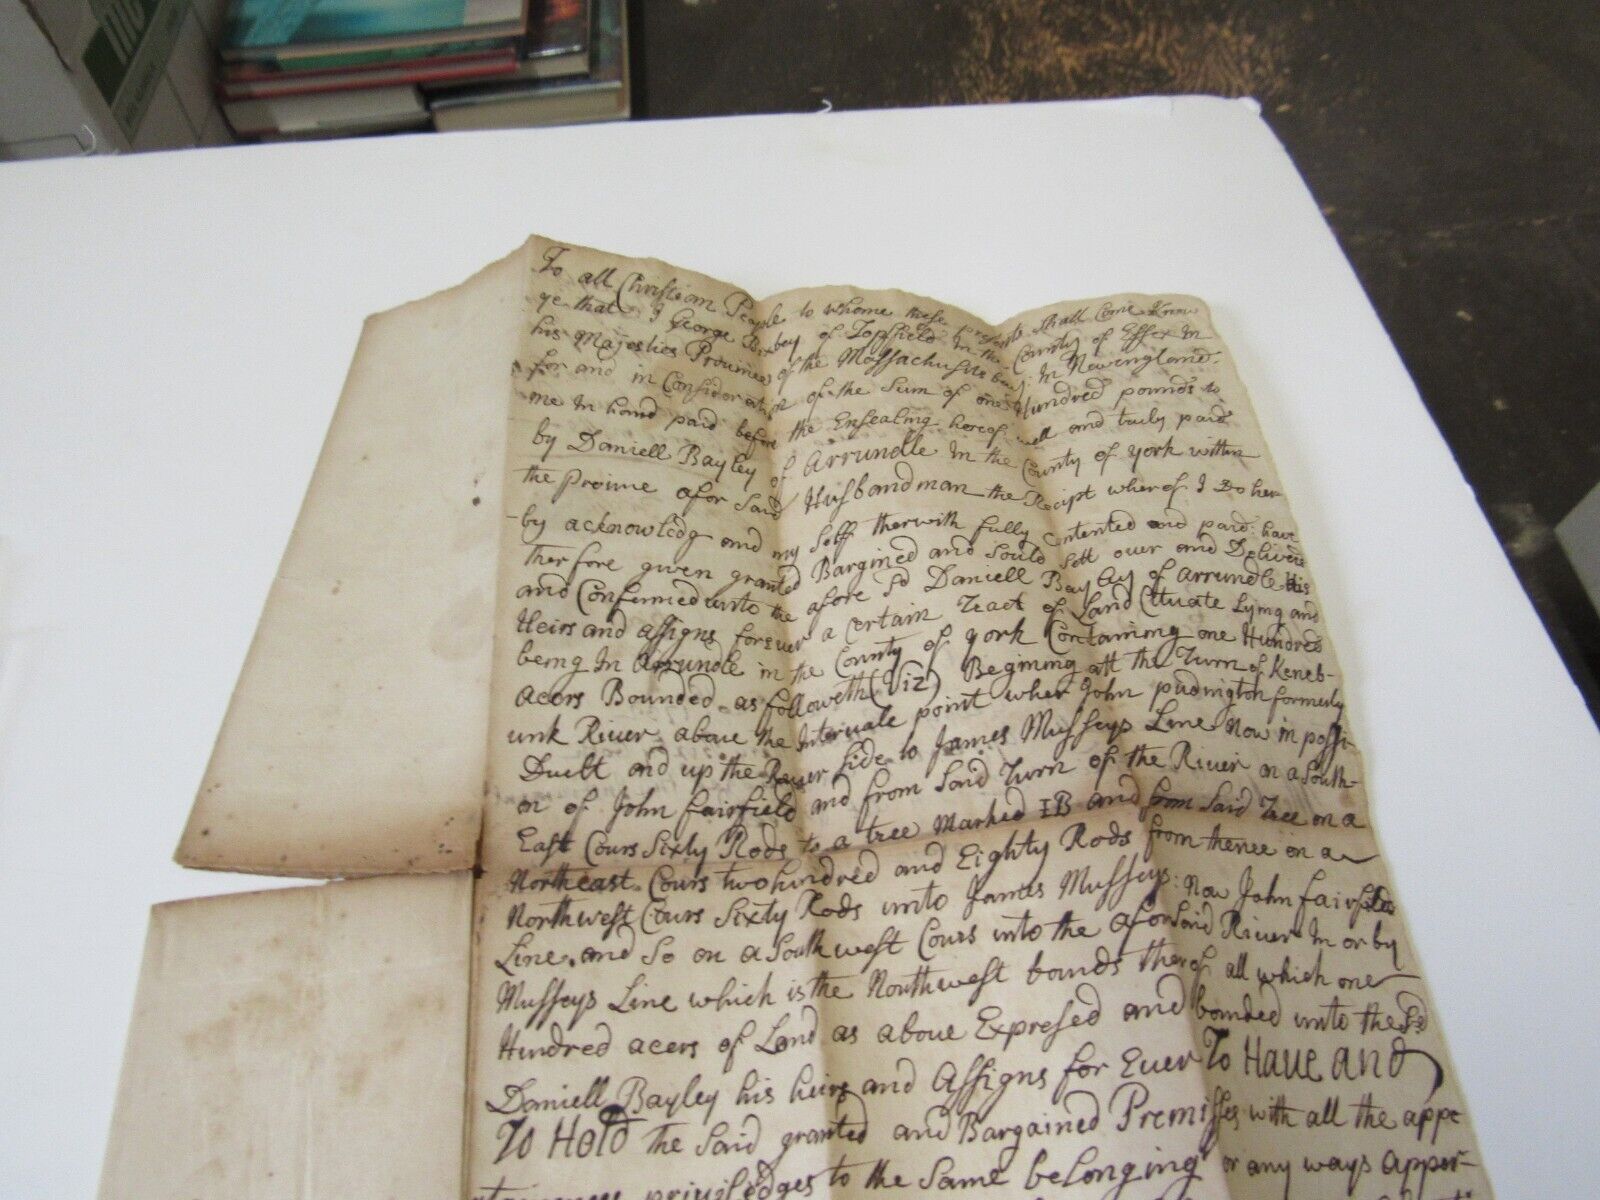 To all Christian People to whome these presents shall Come Know
ye that I George Bixbey of Topsfield In the County of Essex In
his Majesties Prouince of the Massachusits bay: In Newingland:
for and in Considoration of the Sum of one Hundred pounds to
me In hand paid before the Ensealing hereof well and truly paid
by Daniell Bayley of Arrundle In the County of York within
the Prouinc afor Said Husbandman the Receipt wherof I Do her
by acknowledg and my Self therwith fully Contented and paid: have
therfore given granted Bargined and Sould Sett over and Deliverd
and Confermed unto the afore Sd Daniell Bayley of Arrundle His
Heirs and assigns forever a Certain Tract of Land Cituate Lying and
being In Arrundle in the County of York Containing one Hundred
acers Bounded as followeth (Viz) Begining att the Turn of Keneb-
unk Riuer aboue the Interuale point wher John Purington formerly
Duelt and up the Riuer side to James Musseys Line Now in posse
on of John fairfield and from Said Turn of the Riuer on a South-
East Cours Sixty Rods to a tree Marked IB and from Said Tree on a
Northeast Cours two hundred and Eighty Rods from thence on a
Northwest Cours Sixty Rods unto James Musseys: Now John fairfilds
Line and So on a Southwest Cours unto the aforsaid Riuer In or by
Musseys Line which is the Northwest bounds therof all which one
Hundred acers of Land as aboue Expresed and bounded unto the Sd
Daniell Bayley his heirs and Assigns for Euer To Haue and
To Hold the Said granted and Bargained Premisses with all the appe
priuiledges to the Same belonging or any ways apper-